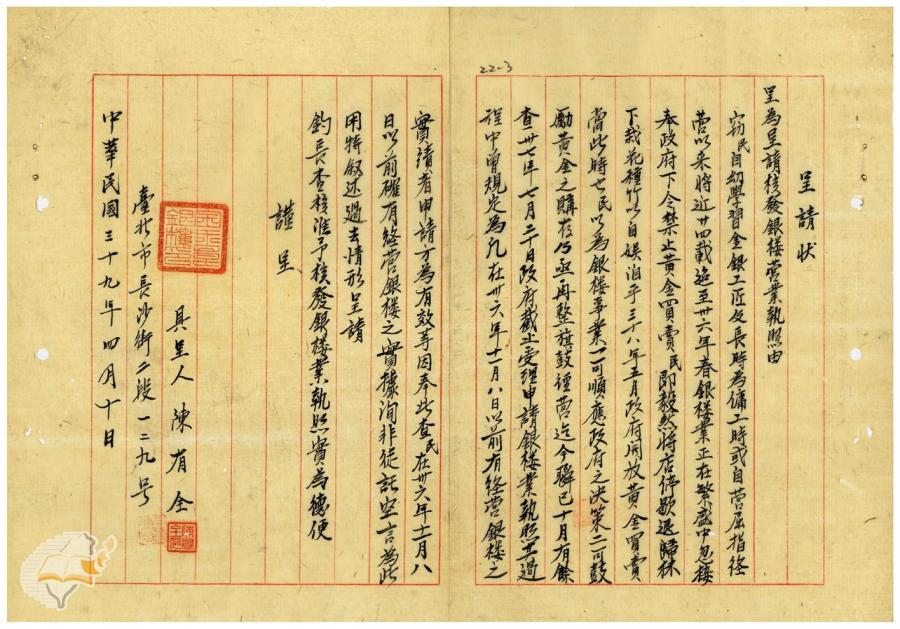 22-3
呈請狀
呈為呈請核發銀楼營業執照由
窃民自幼學習金銀工匠及長時為傭工時或自营屈指經
营以來將近廿四載迨至卅六年春銀楼業正在繁盛中忽接
奉政府下令禁止黃金買賣民即毅然將店停歇退歸林
下栽花種竹以自娛洎乎三十八年五月政府開放黃金買賣
當此時也民以為銀楼事業一可順應政府之決策二可鼓
勵黃金之購存乃亟再整旗鼓經营迄今瞬已十月有餘
查卅七年七月二十日政府截止受理申請銀楼業執照
程中曾規定為凡在卅六年十一月八日以前有経营銀楼之
實績者申請方為有效等因奉此查民在卅六年十一月八
日以前確有経营銀楼之實據洵非徒託空言為此
用特叙述過去情形呈請
鈞長查核准予核發銀楼業執照實為德便
謹呈
具呈人 陳有全
臺北市長沙街二段一二九号
中華民國三十九年四月十日